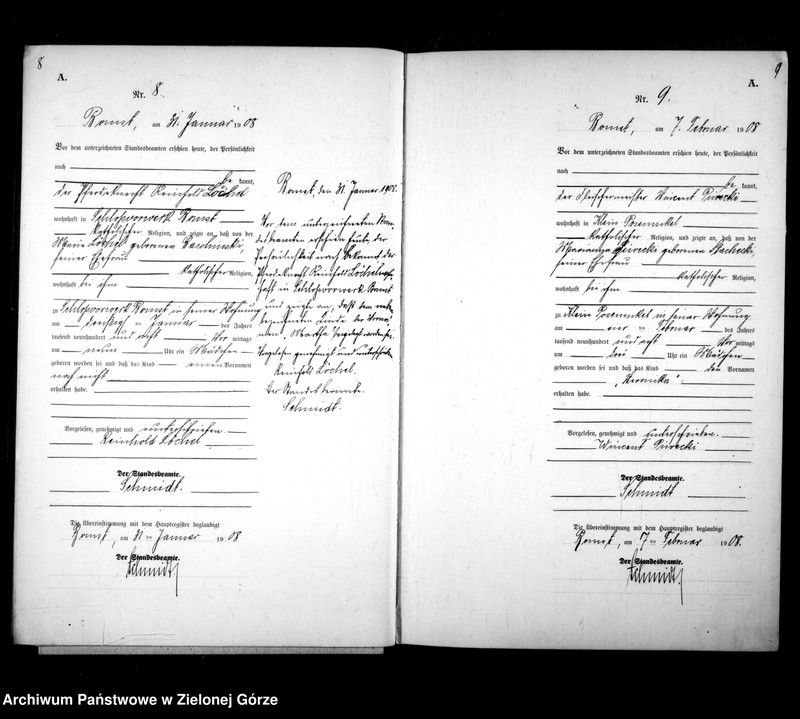 8
A.
Nr. 8.
Bomst, am 31. Januar 1908
Vor dem unterzeichneten Standesbeamten erschien heute, der Persönlichkeit
nach
be kannt,
der Pferdeknecht Reinhold Löchel
wohnhaft in Schloßvorwerk Bomst
katholischer Religion, und zeigte an, daß von der
Maria Löchel geborenen
seiner Ehefrau
katholischer Religion,
wohnhaft bei ihm
zu Schloßvorwerk Bomst in seiner Wohnung
am Januar des Jahres
tausend neunhundert und acht Vor mittags
um neun Uhr ein Mädchen
geboren worden sei und daß das Kind einen Vornamen
noch nicht
erhalten habe.
Vorgelesen, genehmigt und unterschrieben.
Reinhold Löchel
Der Standesbeamte.
Schmidt.
Die Übereinstimmung mit dem Hauptregister beglaubigt
Bomst, am 31 ten Januar 1908
Der Standesbeamte.
Schmidt
Bomst, den 31. Januar 1908.
Vor dem unterzeichneten Stan-
desbeamten erschien heute, der
Persönlichkeit nach bekannt, der
Pferdeknecht Reinhold Löchel wohn-
haft in Schloßvorwerk Bomst
und zeigte an, daß dem neben-
bezeichneten Kinde der Vorna-
men "Martha" beigelegt worden sei.
Vorgelesen genehmigt und unterschrieben
Reinhold Löchel.
Der Standesbeamte.
Schmidt.
9
A.
Nr. 9.
Bomst, am 7. Februar 1908
Vor dem unterzeichneten Standesbeamten erschien heute, der Persönlichkeit
nach
be kannt,
der Wincent Piwecki
wohnhaft in Klein Posemukel
katholischer Religion, und zeigte an, daß von der
Marianna Piwecki geborenen
seiner Ehefrau
katholischer Religion,
wohnhaft bei ihm
zu Klein Posemukel in seiner Wohnung
am vier ten Februar des Jahres
tausend neunhundert und acht Vor mittags
um drei Uhr ein Mädchen
geboren worden sei und daß das Kind den Vornamen
"Veronika"
erhalten habe.
Vorgelesen, genehmigt und unterschrieben.
Wincent Piwecki
Der Standesbeamte.
Schmidt
Die Übereinstimmung mit dem Hauptregister beglaubigt
Bomst, am 7 ten Februar 1908.
Der Standesbeamte.
Schmidt
Archiwum Państwowe w Zielonej Górze